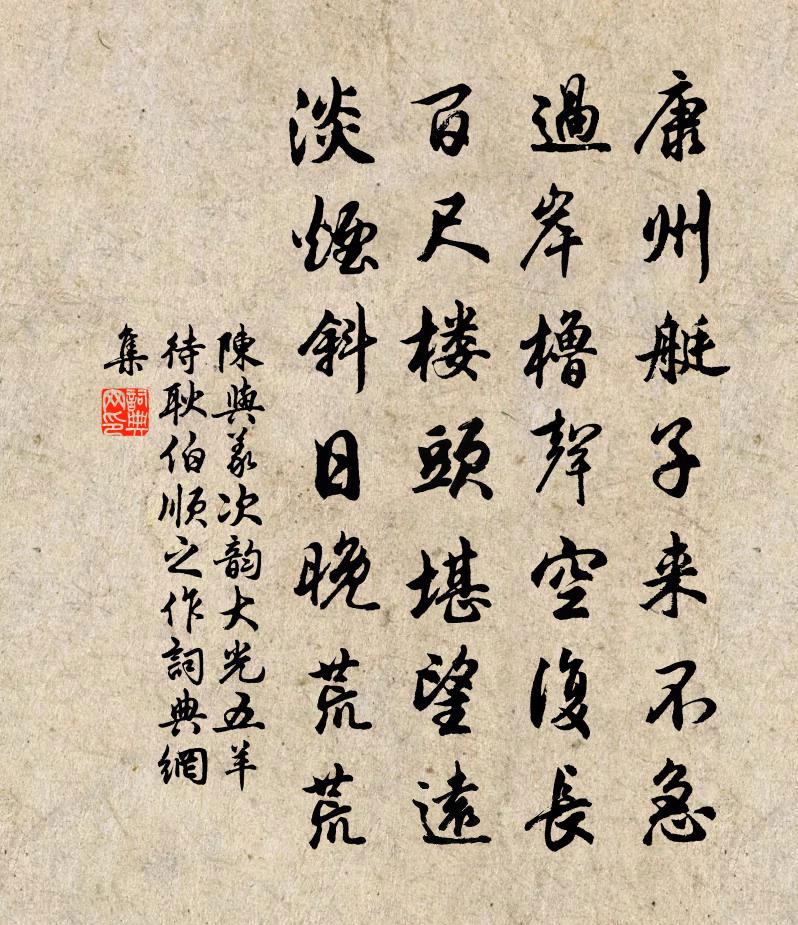 康州艇子来不急
過岸櫓聲空復長
百尺楼頭堪望遠
淡煙斜日晚荒荒
陳與義次韵大光五羊
待耿伯順之作詞典網
集
詞典網印